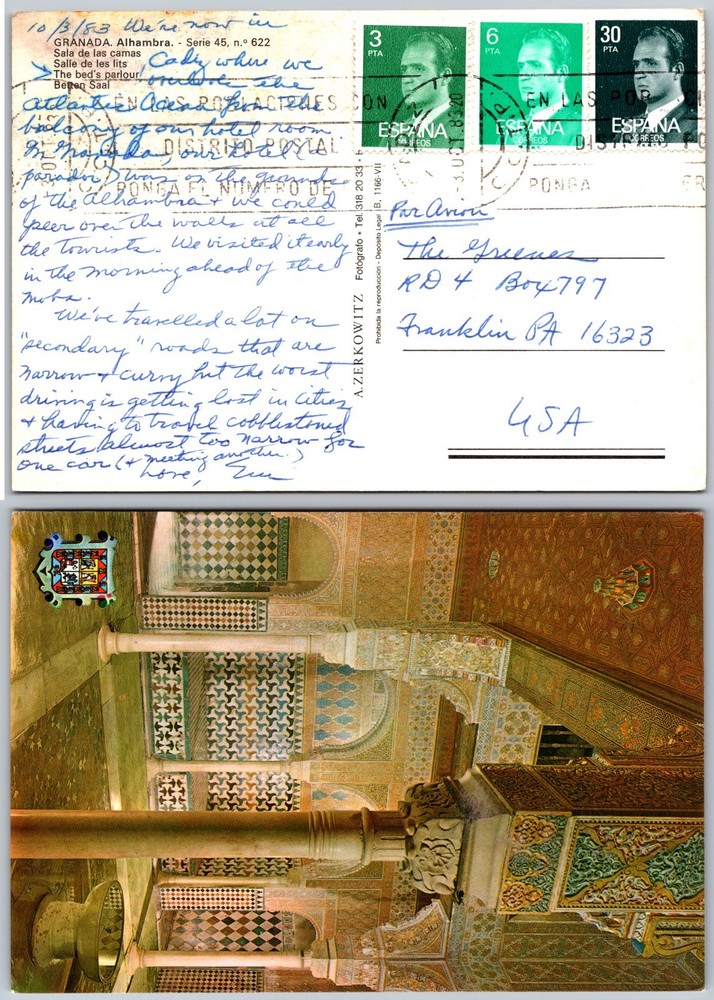 10/3/83 We're now in
GRANADA. Alhambra. - Serie 45, n.º 622
Sala de las camas
Salle de les lits
The bed's parlour
Betten Saal
Cadiz where we
overlook the
Atlantic Ocean from the
balcony of our hotel room
In Granada, our hotel (a
parador) was on the grounds
of the Alhambra + we could
peer over the walls at all
the tourists. We visited it early
in the morning ahead of the
mobs.
We've travelled a lot on
"secondary" roads that are
narrow + curvy but the worst
driving is getting lost in cities
+ having to travel cobblestoned
streets almost too narrow for
one car (+ meeting another.)
Love,
A. ZERKOWITZ Fotógrafo • Tel. 318 20 33 •
Prohibida la reproducción - Depósito Legal B. 1166-VII
3 PTA
ESPAÑA
CORREOS
6 PTA
ESPAÑA
CORREOS
30 PTA
ESPAÑA
CORREOS
EN LAS POBLACIONES CON
DISTRITO POSTAL
PONGA EL NUMERO DE
-3 OCT 83 20
EN LAS POB
DIST
PONGA
Par Avion
The Greenes
RD 4 Box 797
Franklin PA 16323
USA